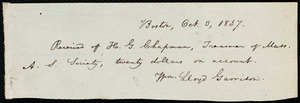 Boston, Oct. 3, 1837.
Received of H. G. Chapman, Treasurer of Mass.
A. S. Society, twenty dollars on account.
Wm. Lloyd Garrison.